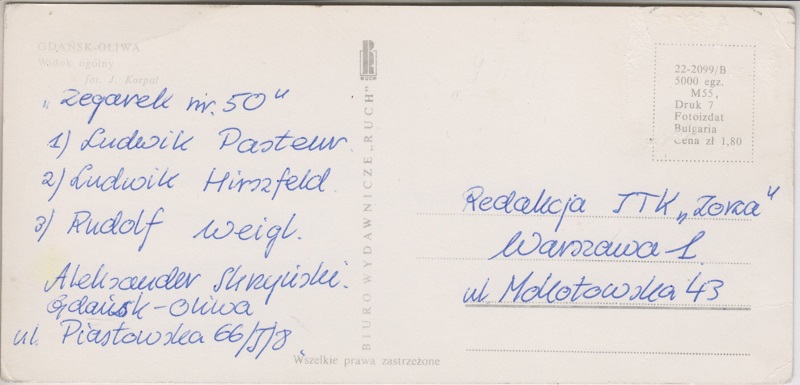 GDAŃSK-OLIWA
Widok ogólny
fot. J. Korpal
„Zegarek nr. 50"
1) Ludwik Pasteur.
2) Ludwik Hirszfeld.
3) Rudolf Weigl.
Aleksander Skrzyński.
Gdańsk-Oliwa
ul. Piastowska 66/5/8
BIURO WYDAWNICZE „RUCH"
RUCH
Wszelkie prawa zastrzeżone
22-2099/B
5000 egz.
M55,
Druk 7
Fotoizdat
Bulgaria
Cena zł 1,80
Redakcja ITK „Zorza"
Warszawa 1.
ul. Mokotowska 43